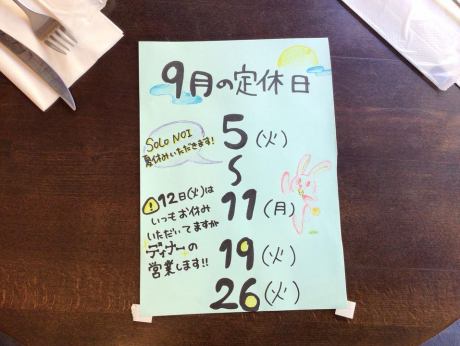 9月の定休日
SOLO NOI
夏休みいただきます!
5(火)
〜
11(月)
! 12日(火)は
いつもお休み
いただいてますが
ディナーの
営業します!!
19(火)
26(火)